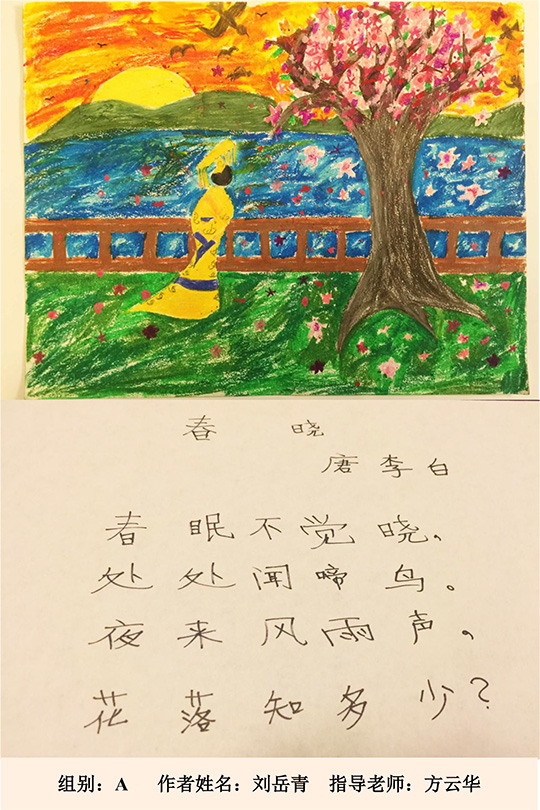 春 晓
唐 李 白
春 眠 不 觉 晓，
处 处 闻 啼 鸟。
夜 来 风 雨 声，
花 落 知 多 少？
组别：A 作者姓名：刘岳青 指导老师：方云华